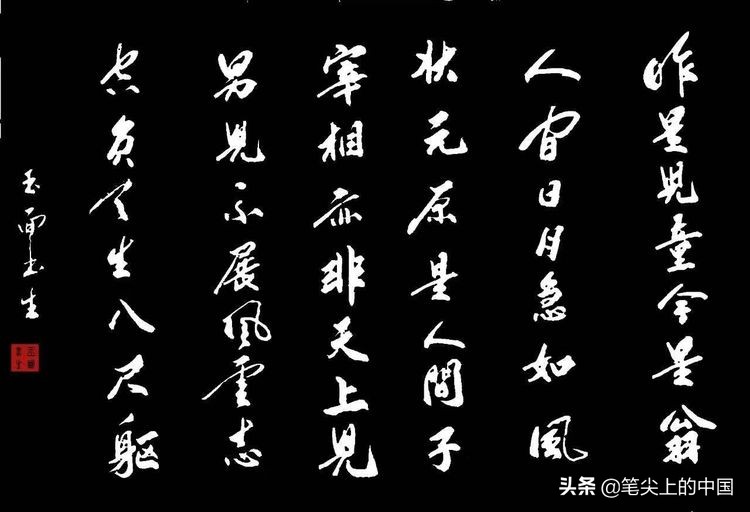 昨是兒童今是翁
人间日月急如風
状元原是人間子
宰相亦非天上兒
男兒不展風雲志
空負天生八尺軀
玉面书生
头条 @笔尖上的中国